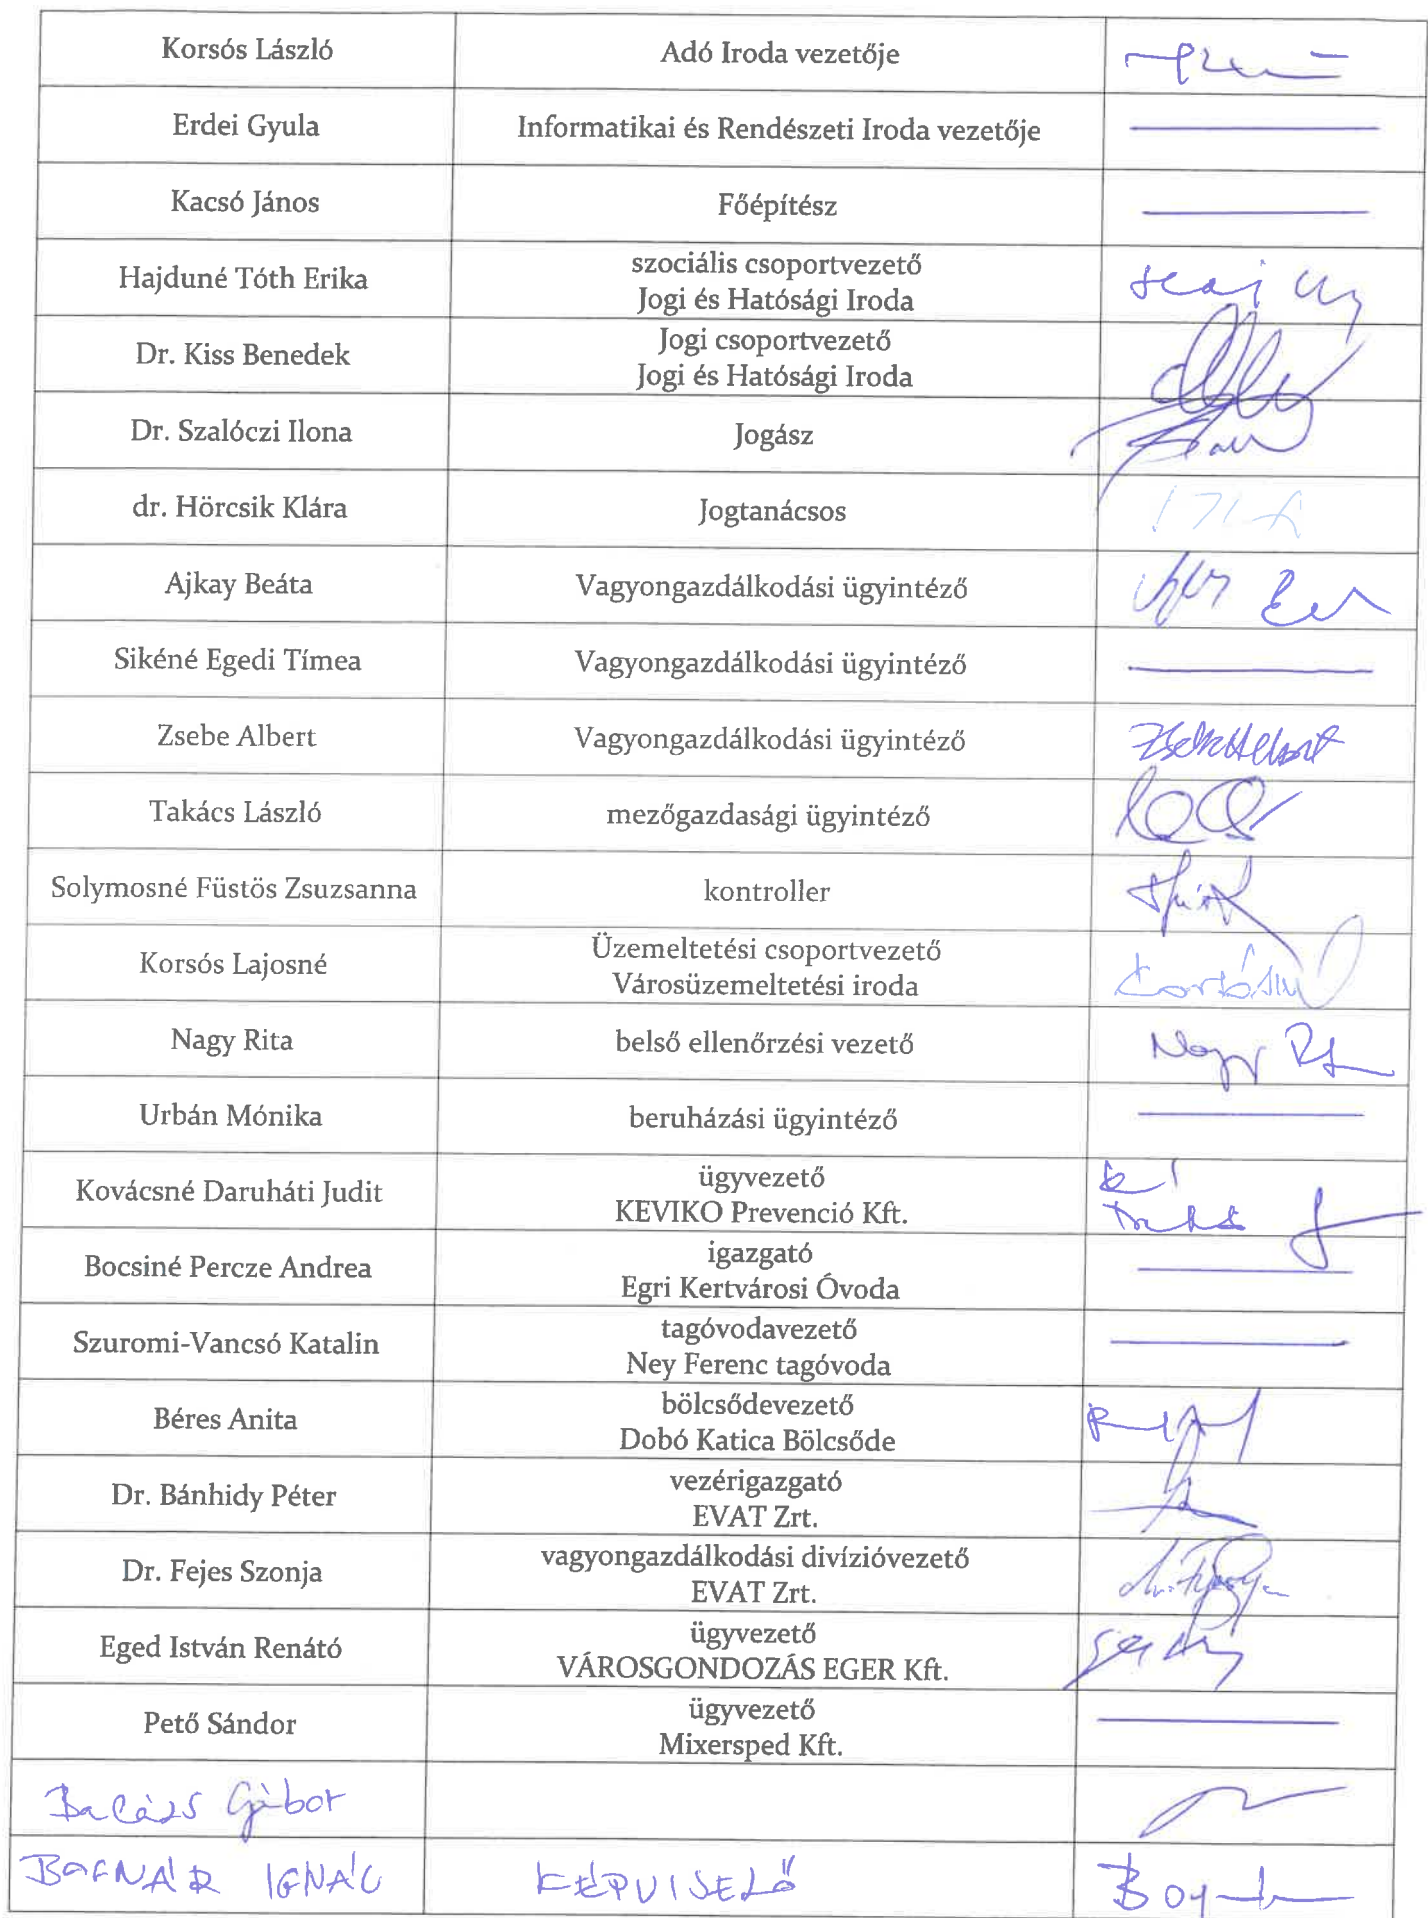 Korsós László Adó Iroda vezetője
Erdei Gyula Informatikai és Rendészeti Iroda vezetője
Kacsó János Főépítész
Hajduné Tóth Erika szociális csoportvezető
Jogi és Hatósági Iroda
Dr. Kiss Benedek Jogi csoportvezető
Jogi és Hatósági Iroda
Dr. Szalóczi Ilona Jogász
dr. Hörcsik Klára Jogtanácsos
Ajkay Beáta Vagyongazdálkodási ügyintéző
Sikéné Egedi Tímea Vagyongazdálkodási ügyintéző
Zsebe Albert Vagyongazdálkodási ügyintéző
Takács László mezőgazdasági ügyintéző
Solymosné Füstös Zsuzsanna kontroller
Korsós Lajosné Üzemeltetési csoportvezető
Városüzemeltetési iroda
Nagy Rita belső ellenőrzési vezető Nagy
Urbán Mónika beruházási ügyintéző
Kovácsné Daruháti Judit ügyvezető
KEVIKO Prevenció Kft.
Bocsiné Percze Andrea igazgató
Egri Kertvárosi Óvoda
Szuromi-Vancsó Katalin tagóvodavezető
Ney Ferenc tagóvoda
Béres Anita bölcsődevezető
Dobó Katica Bölcsőde
Dr. Bánhidy Péter vezérigazgató
EVAT Zrt.
Dr. Fejes Szonja vagyongazdálkodási divízióvezető
EVAT Zrt.
Eged István Renátó ügyvezető
VÁROSGONDOZÁS EGER Kft.
Pető Sándor ügyvezető
Mixersped Kft.
Balázs Gábor
BOGNÁR IGNÁC KÉPVISELŐ